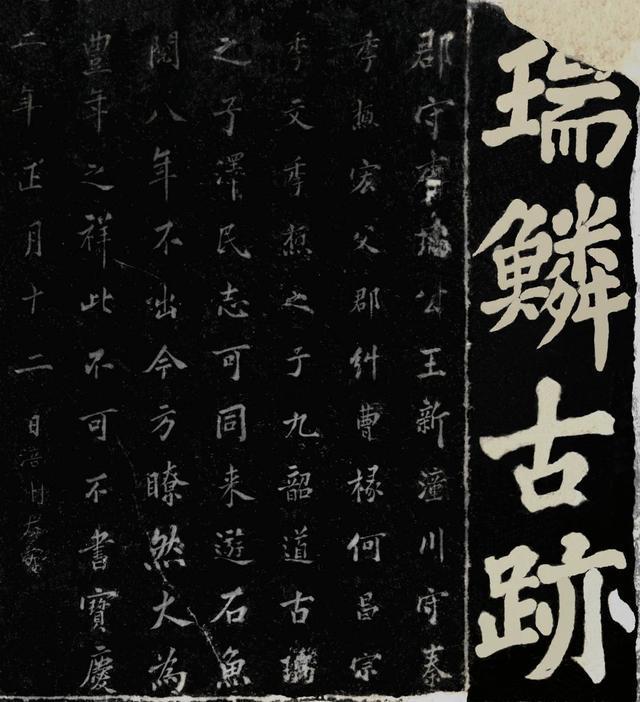 瑞鱗古跡
郡守李瑀公王新潼川守秦
季槱宏父郡糾曹掾何昌宗
季文季槱之子九韶道古瑀
之子澤民志可同来遊石魚
閱八年不出今方瞭然大為
豊年之祥此不可不書寶慶
二年正月十二日涪州